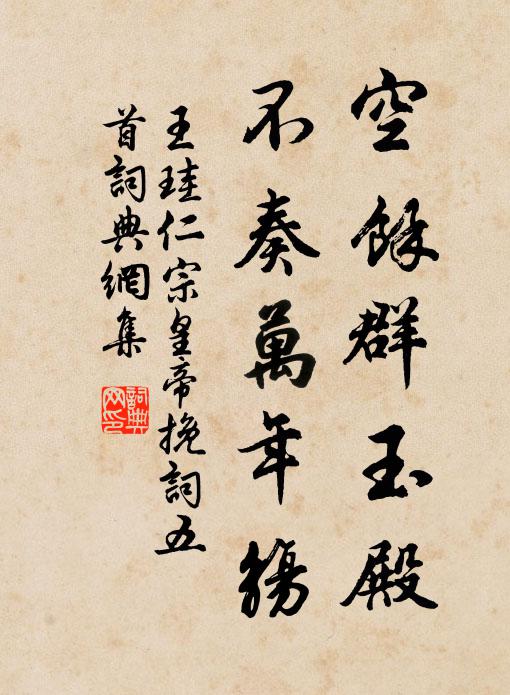 空餘群玉殿
不奏萬年觴
王珪仁宗皇帝挽詞五
首詞典網集
詞典
网印